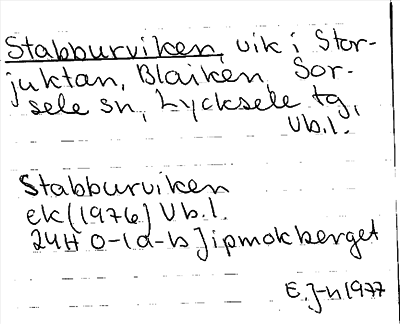 Stabburviken, vik i Stor-
juktan, Blaiken, Sor-
sele sn, Lycksele tg,
Vb.l.
Stabburviken
ek (1976) Vb.l.
24H 0-1a-b Jipmokberget
E.J-n 1977